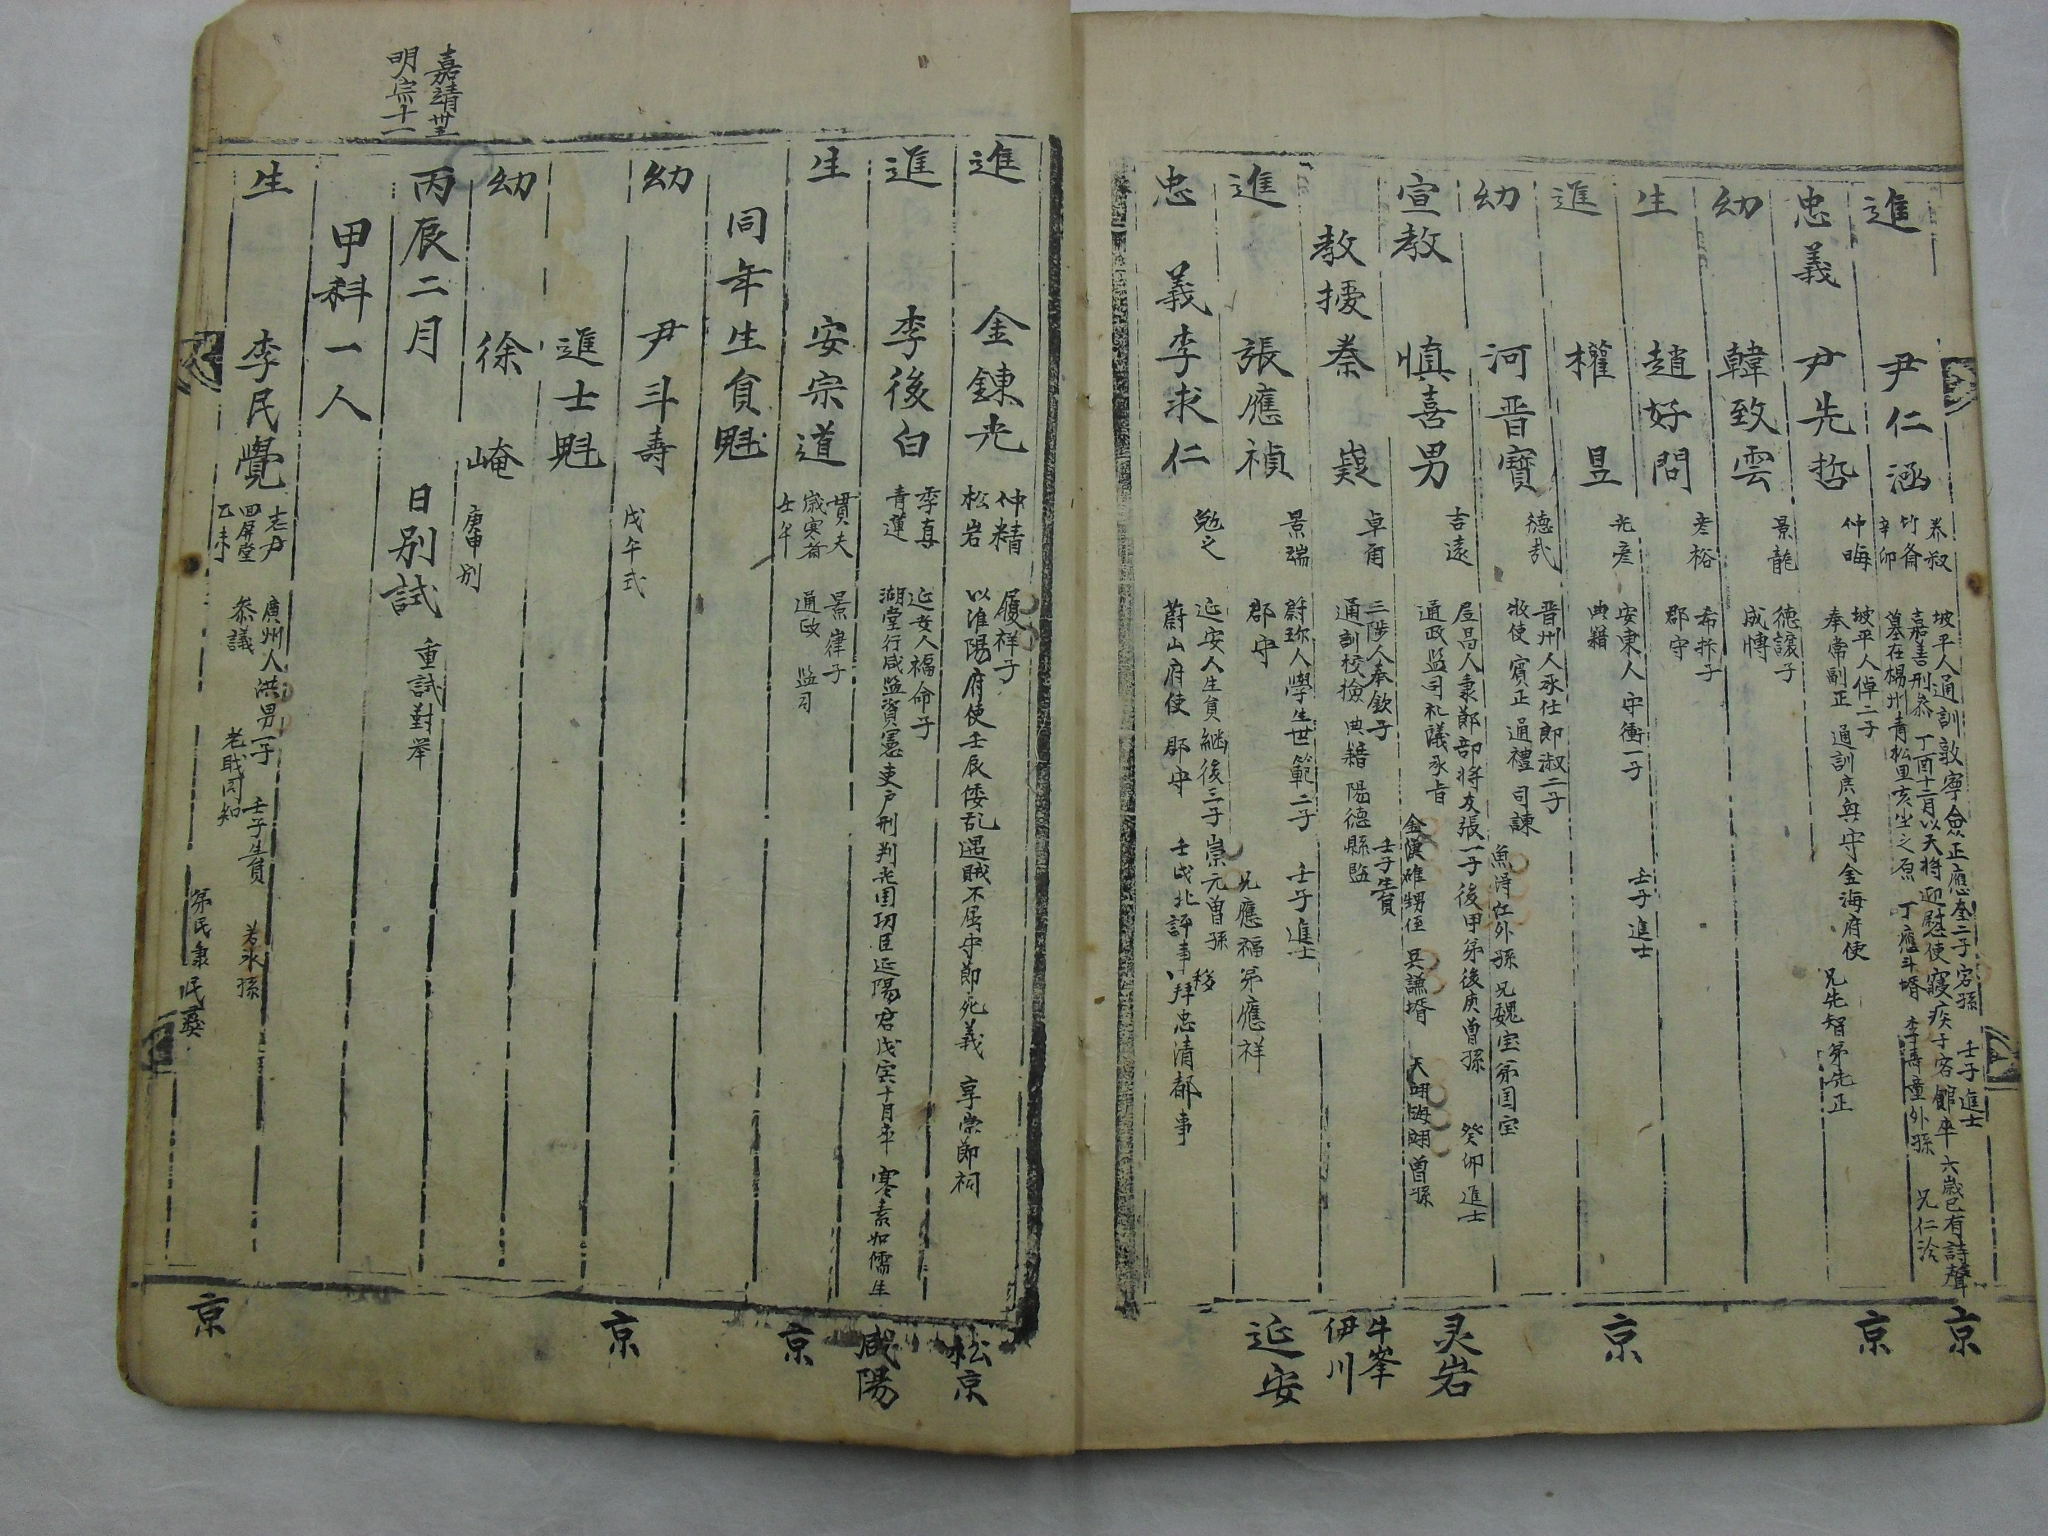 進 尹仁涵 養叔 竹齋 辛卯 坡平人通訓敦寧僉正應奎二子容孫 壬子進士
嘉善刑參 丁酉十二月以天將迎慰使寢疾于客館卒 六歲已有詩聲
墓在楊州青松里亥坐之原 丁應斗婿 李壽童外孫 兄仁洽 京
忠義 尹先哲 仲晦 坡平人倬二子
奉常副正 通訓 守金海府使 兄先智弟先正 京
幼 韓致雲 景龍 德讓子
成慱
生 趙好問 彦裕 希 子
郡守
進 權昷 光彦 安東人 守衡一子 壬子進士
典籍 京
幼 河晋寶 德哉 晋州人承仕郎淑二子 魚得江外孫 兄魏宝弟国宝
牧使 賓正 通禮 司諫
宣教 愼喜男 吉遠 居昌人秉節部將友張一子後甲弟後庚曾孫 癸卯進士
通政監司礼議承旨 金漢碓甥侄 吳謙婿 天翊海翊曾孫 灵岩
教授 秦嶷 卓角 三陟人奉欽子 壬子生員
通訓校檢 典籍 陽德縣監 牛峯 伊川
進 張應禎 景瑞 蔚珍人學生世範二子 壬子進士
郡守 兄應福弟應祥 延安
忠義 李求仁 勉之 延安人生員繼後三子崇元曾孫
蔚山府使 郡守 壬戌北評事 以拜忠清都事 移
進 金鍊光 仲精 松岩 履祥子
以淮陽府使壬辰倭乱遇賊不屈守節死義 享崇節祠 松京
進 李後白 季真 青蓮 延安人福命子
湖堂行咸監資憲吏戶刑判光国功臣延陽君戊寅十月卒 寒素如儒生 咸陽
生 安宗道 貫夫 歲寒齋 壬午 景律子
通政 監司 京
同年生員魁
幼 尹斗壽 戊午式 京
進士魁
幼 徐崦 庚申別
嘉靖卅五
明宗十一
丙辰二月 日別試 重試對举
甲科一人
生 李民覺 志尹 四屏堂 乙未 廣州人洪男一子 壬子生員 若氷孫
參議 老職同知 弟民 民 京